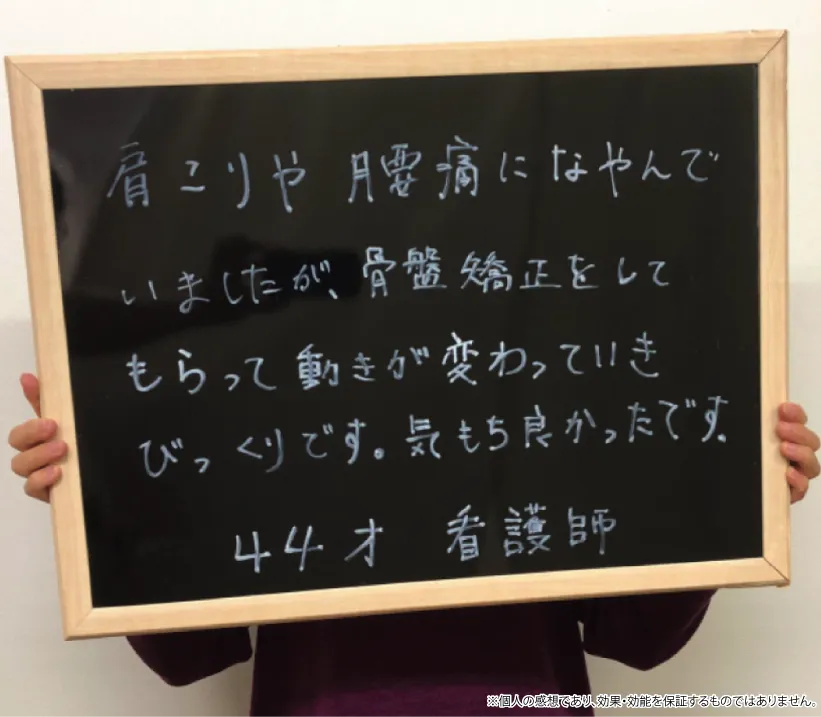 肩こりや 腰痛になやんで
いましたが、骨盤矯正をして
もらって動きが変わっていき
びっくりです。気もち良かったです。
44才 看護師
※個人の感想であり、効果・効能を保証するものではありません。